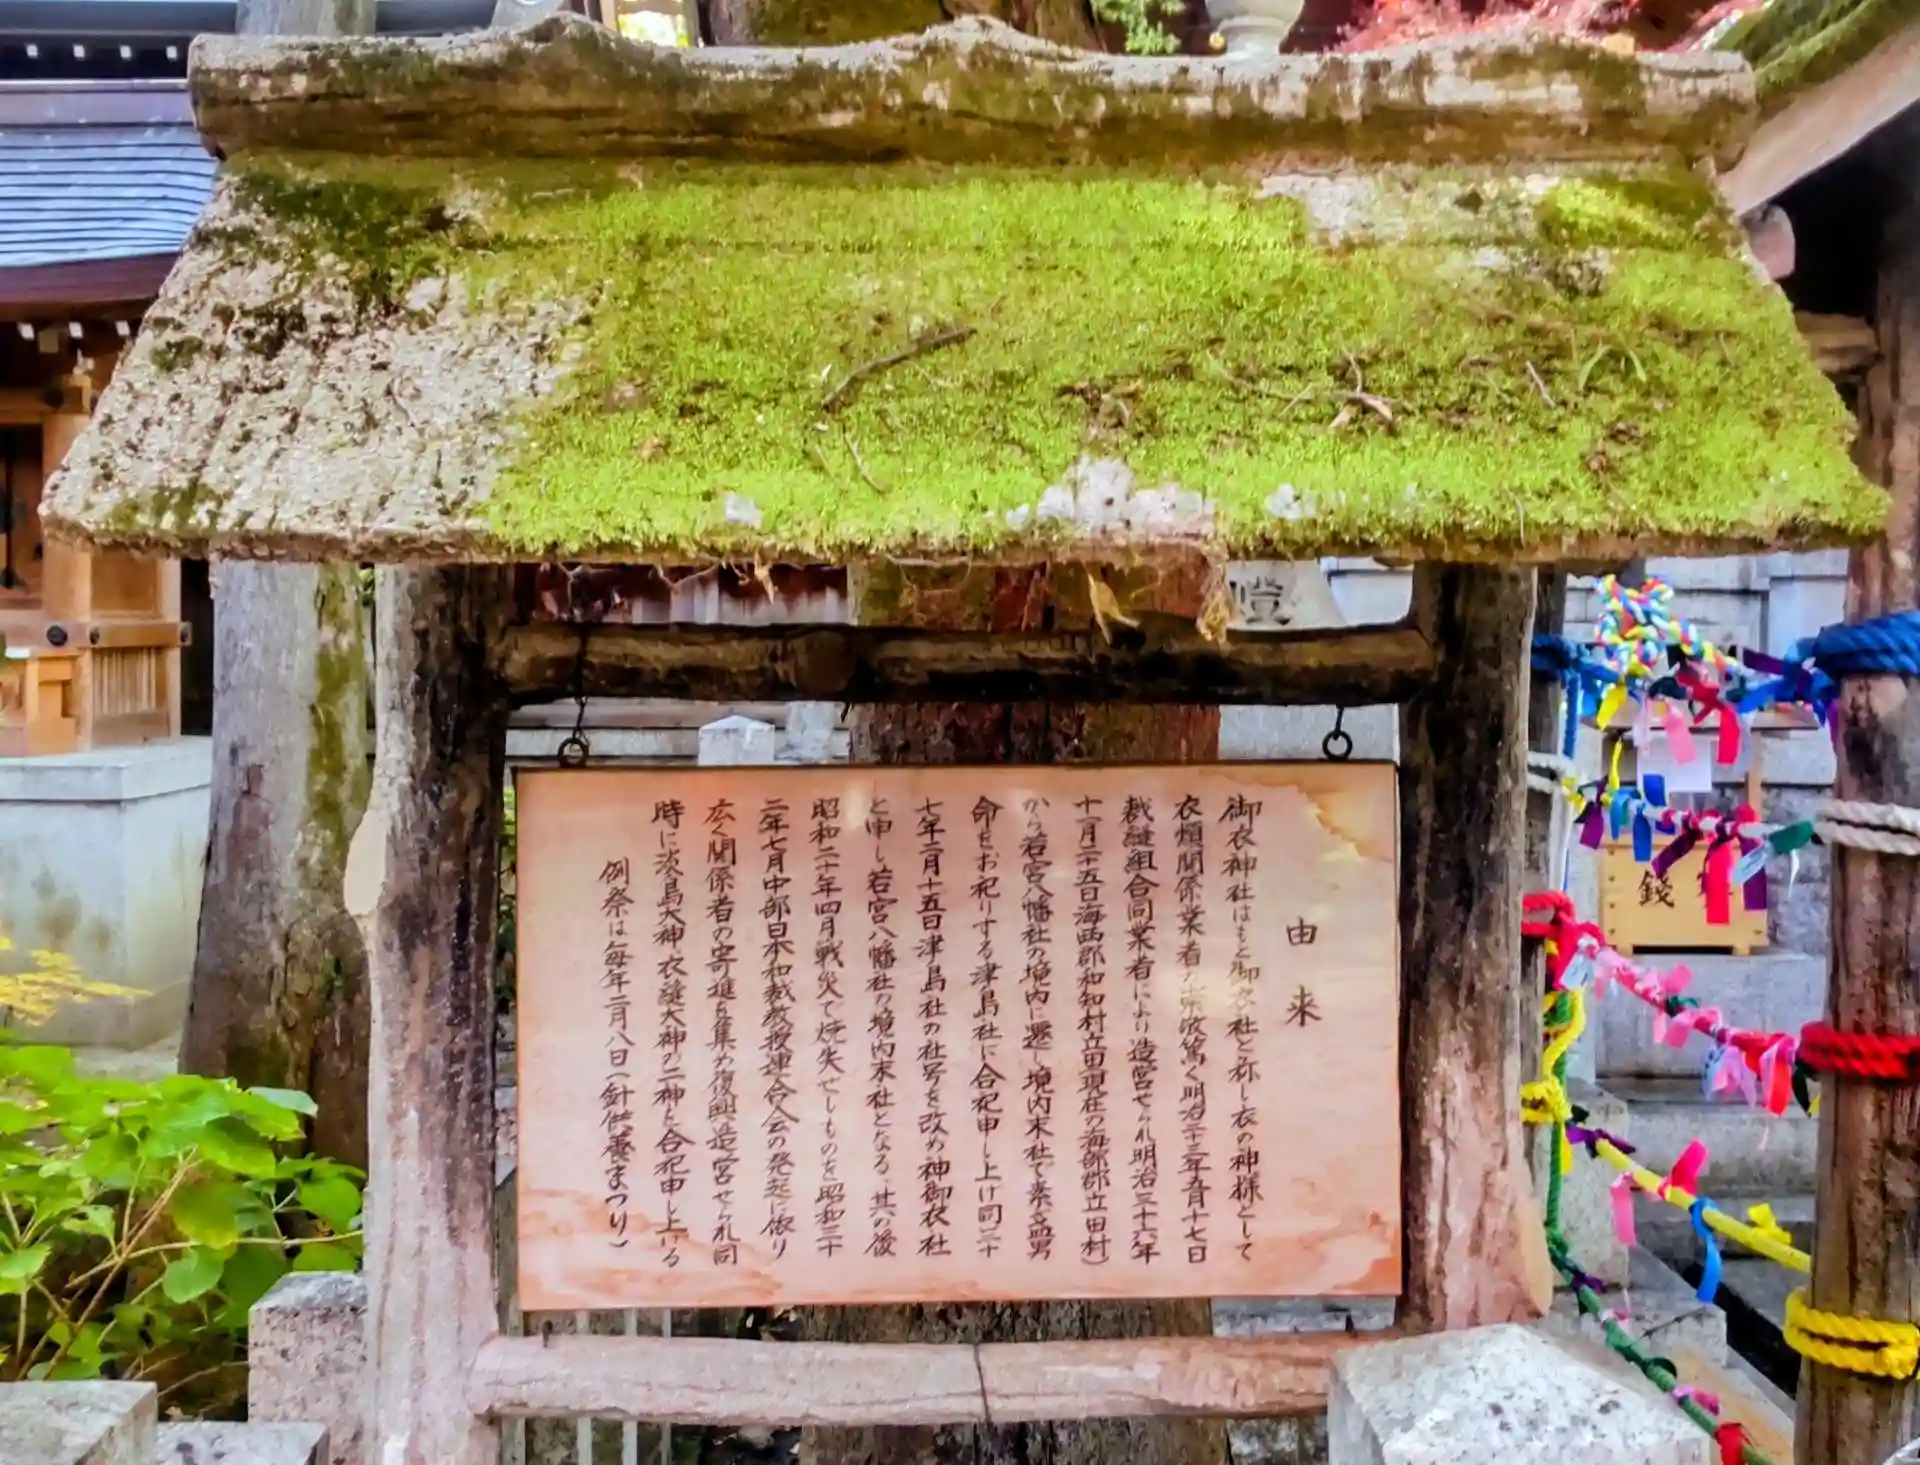 由来
御衣神社はもと御衣社と称し衣の神様として
衣類関係業者の崇敬篤く明治二十三年五月十七日
裁縫組合同業者により造宮せられ明治三十六年
十一月二十五日海西郡和知村立田現在の海部郡立田村）
から若宮八幡社の境内に遷し境内末社で素盞男
命をお祀りする津島社に合祀申し上げ同三十
七年二月十五日津島社の社号を改め神御衣社
と申し若宮八幡社の境内末社となる、其の後
昭和二十年四月戦災で焼失せしものを昭和三十
二年七月中部日本和裁教授連合会の発起に依り
広く関係者の寄進を集め復興造宮せられ同
時に淡島大神、衣縫大神の二神を合祀申し上げる
例祭は毎年二月八日（針供養まつり）
銭